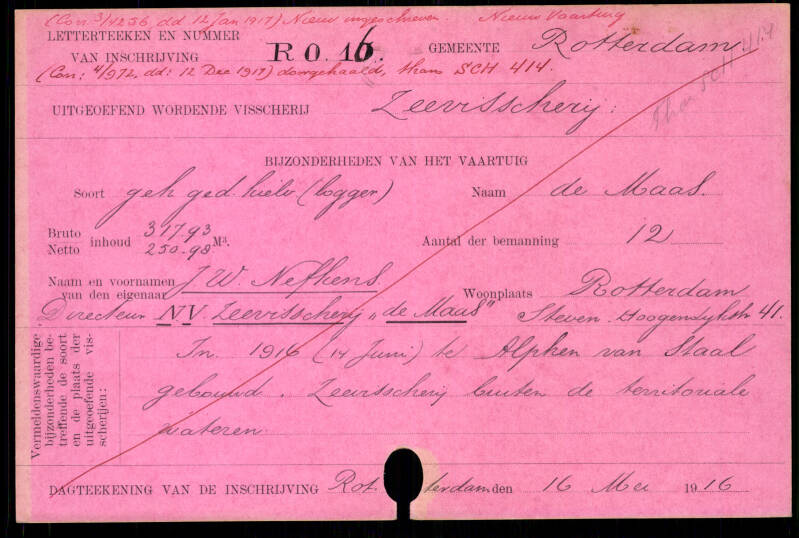 (Con: 3/4256, dd. 12 Jan 1917) Nieuw ingeschreven Nieuw Vaartuig
LETTERTEEKEN EN NUMMER
VAN INSCHRIJVING RO. 16. GEMEENTE Rotterdam
(Con: 4/972, dd: 12 Dec 1917) doorgehaald, thans SCH 414.
thans SCH 414
UITGEOEFEND WORDENDE VISSCHERIJ Zeevisscherij:
BIJZONDERHEDEN VAN HET VAARTUIG
Soort geh ged. kielv (logger) Naam de Maas.
Bruto 317.93
inhoud M³. Aantal der bemanning 12
Netto 250.98
Naam en voornamen J. W. Nefkens. Woonplaats Rotterdam
van den eigenaar
Directeur NV. Zeevisscherij "de Maas" Steven Hoogendijkstr 41.
Vermeldenswaardige
bijzonderheden be-
treffende de soort
en de plaats der
uitgeoefende vis-
scherijen:
In 1916 (14 Juni) te Alphen van Staal
gebouwd. Zeevisscherij buiten de territoriale
wateren.
DAGTEEKENING VAN DE INSCHRIJVING Rotterdam den 16 Mei 1916